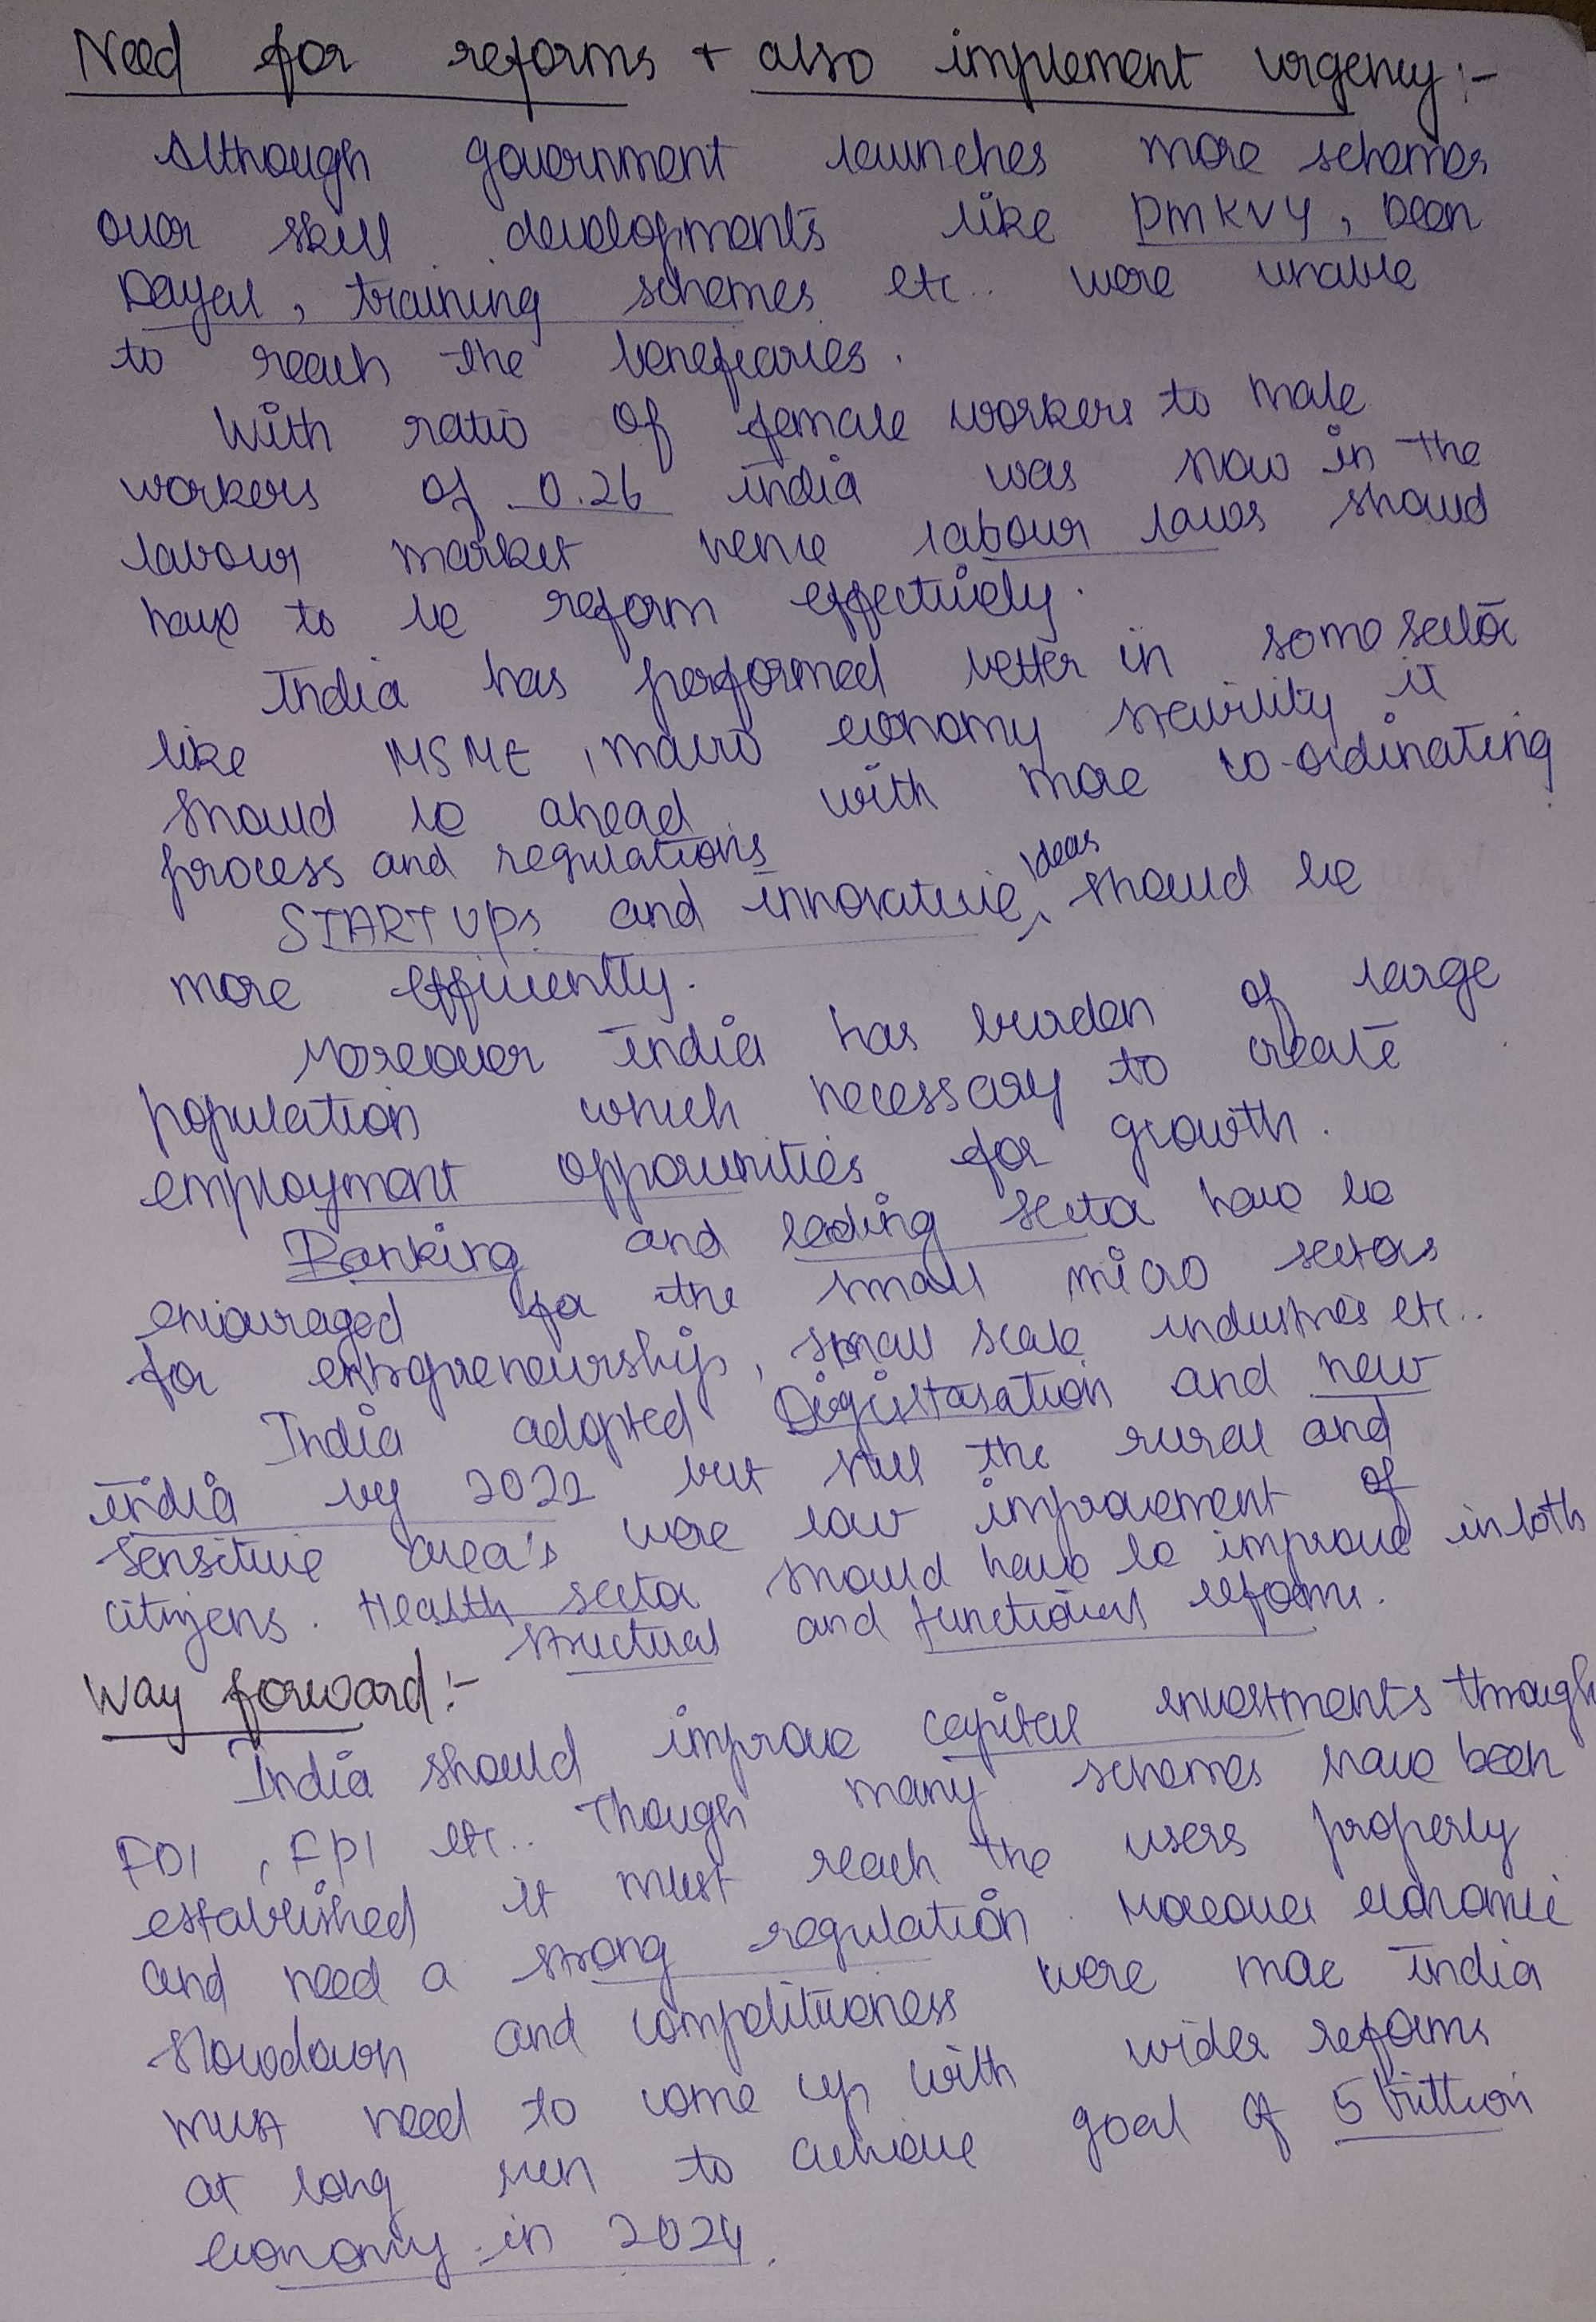 Need for reforms + also implement urgency:-
Although government launches more schemes
over skill developments like PMKVY, Deen
Dayal, training schemes etc.. were unable
to reach the beneficiaries.
With ratio of female workers to male
workers of 0.26 india was slow in the
labour market hence labour laws should
have to be reform effectively.
India has performed better in some sector
like MSME, macro economy stability it
should be ahead with more co-ordinating
process and regulations
STARTUPs and innovative ideas should be
more efficiently.
Moreover India has burden of large
population which necessary to create
employment oppourunities for growth.
Banking and leading sector have be
encouraged for the small micro sectors
for entrepreneurship, small scale industries etc..
India adopted Digistasation and new
india by 2022 but still the rural and
sensitive area's were low improvement of
citizens. Health sector should have be improve in both
structural and functional reforms.
Way forward:-
India should improve capital investments through
FDI, FPI etc.. Though many schemes have been
established it must reach the users properly
and need a strong regulation. Moreover economic
slowdown and competitiveness were more India
must need to come up with wider reforms
at long run to achieve goal of 5 trillion
economy in 2024.